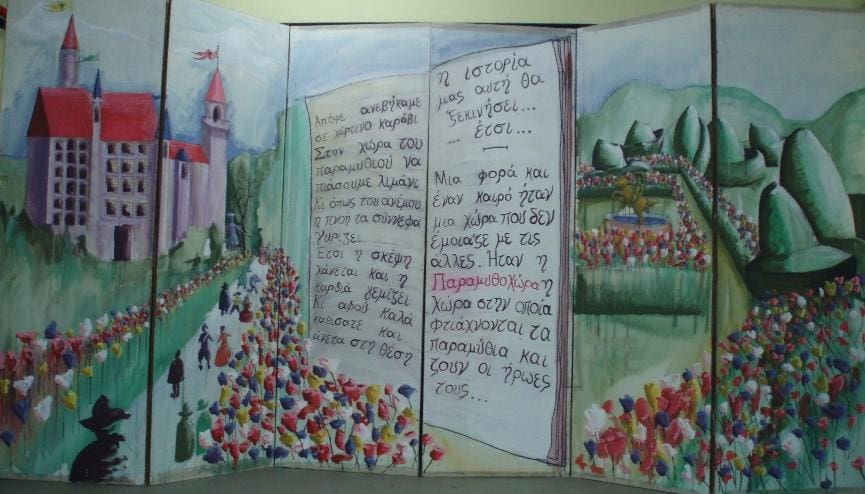 Απόψε ανεβήκαμε
σε χάρτινο καράβι
Στην χώρα του
παραμυθιού να
πιάσουμε λιμάνι
Κι όπως του ανέμου
η πνοή τα σύννεφα
γυρίζει
Έτσι η σκέψη
χάνεται και η
καρδιά γεμίζει
Κι αφού καλά
καθίσατε και
άνετα στη θέση
η ιστορία
μας αυτή θα
ξεκινήσει...
... έτσι...
Μια φορά και
έναν καιρό ήταν
μια χώρα που δεν
έμοιαζε με τις
άλλες. Ήταν η
Παραμυθοχώρα η
χώρα στην οποία
φτιάχνονται τα
παραμύθια και
ζουν οι ήρωες
τους...